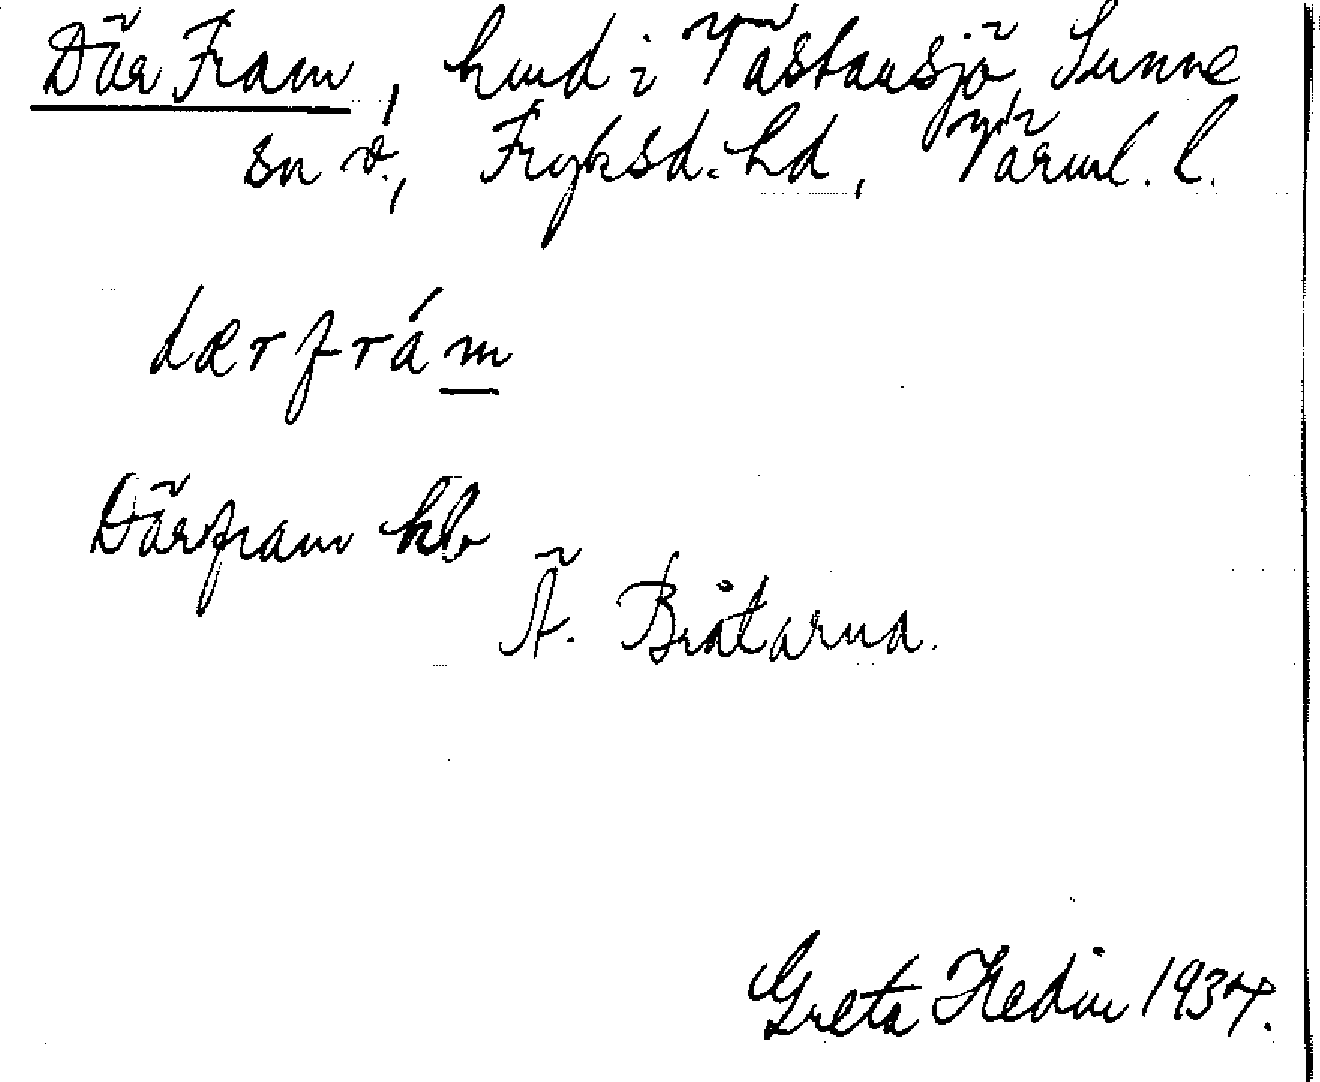 Där Fram, hmd i Västansjö, Sunne
sn o., Fryksd. hd, Värml. l.
dærfrám
Därfram hb
Ä. Bråtarna.
Greta Hedin 1937.